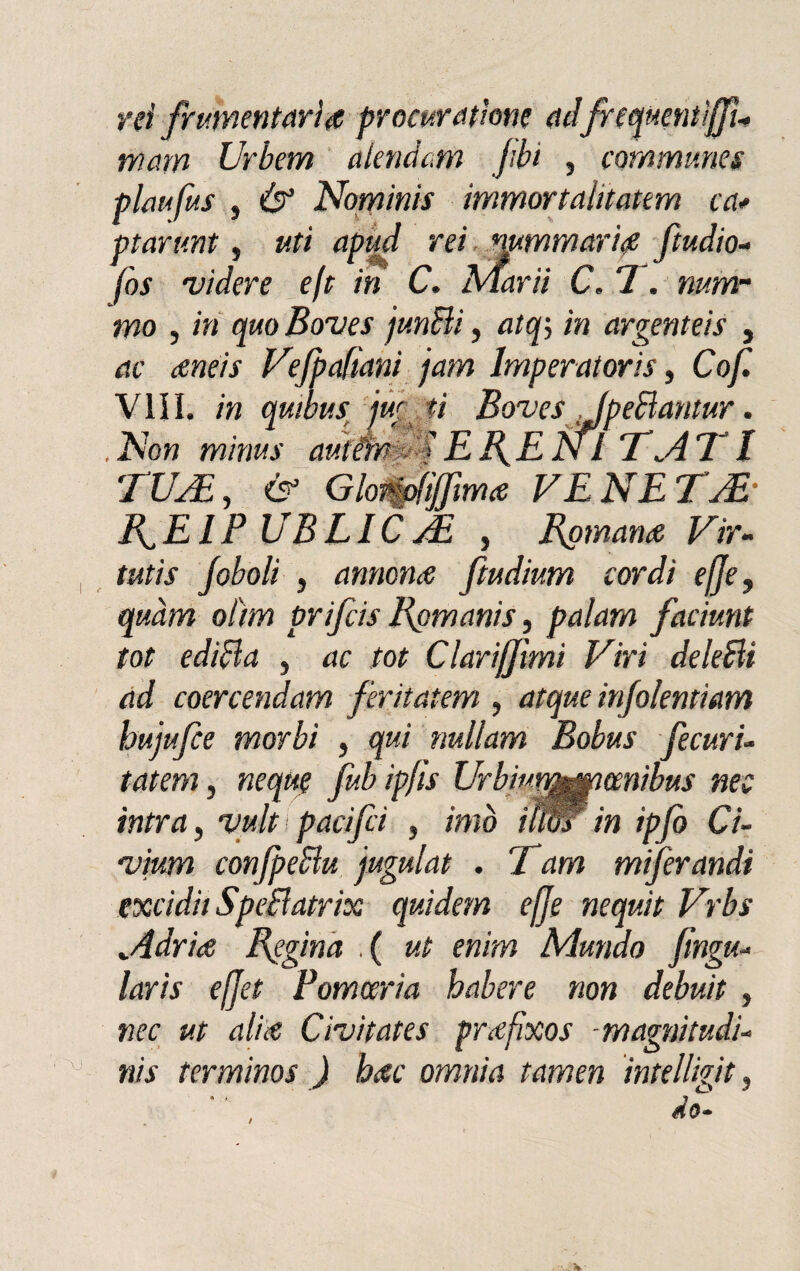 rei frumentariæ procuratione ad frequentiſſi-
mam Urbem alendam ſibi , communes
plauſus , & Nominis immortalitatem ca-
ptarunt , uti apud rei nummariæ ſtudio-
ſos videre eſt in C. Marii C. T. num-
mo , in quo Boves juncti , atq; in argenteis ,
ac æneis Veſpaſiani jam Imperatoris , Coſ.
VIII. in quibus ti Boves ſpectantur .
Non minus autem ERENITATI
TUÆ , & Glorioſiſſimæ VENETÆ
REIPUBLICÆ , Romanæ Vir-
tutis ſoboli , annonæ ſtudium cordi eſſe ,
quàm olim priſcis Romanis , palam faciunt
tot edicta , ac tot Clariſſimi Viri delecti
ad coercendam feritatem , atque inſolentiam
hujuſce morbi , qui nullam Bobus ſecuri-
tatem , neque ſub ipſis Urbium mœnibus nec
intra , vult paciſci , imò illos in ipſo Ci-
vium conſpectu jugulat . Tam miſerandi
excidii Spectatrix quidem eſſe nequit Vrbs
Adriæ Regina ( ut enim Mundo ſingu-
laris eſſet Pomœria habere non debuit ,
nec ut aliæ Civitates præfixos magnitudi-
nis terminos ) hæc omnia tamen intelligit ,
do-